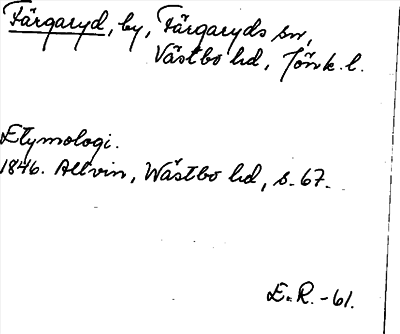 Färgaryd, by, Färgaryds sn,
Västbo hd, Jönk. l.
Etymologi.
1846. Allvin, Wästbo hd, s. 67.
E. R. -61.